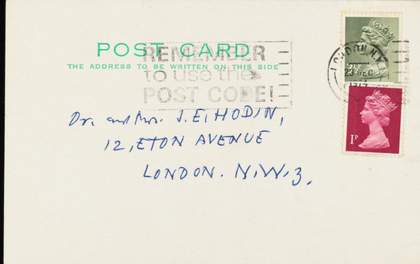 POST CARD
THE ADDRESS TO BE WRITTEN ON THIS SIDE
REMEMBER
to use the
POST CODE!
LONDON N.W.
23 DEC
1P
Dr. and Mrs. J. E. HODIN,
12, ETON AVENUE
LONDON. N.W.3.